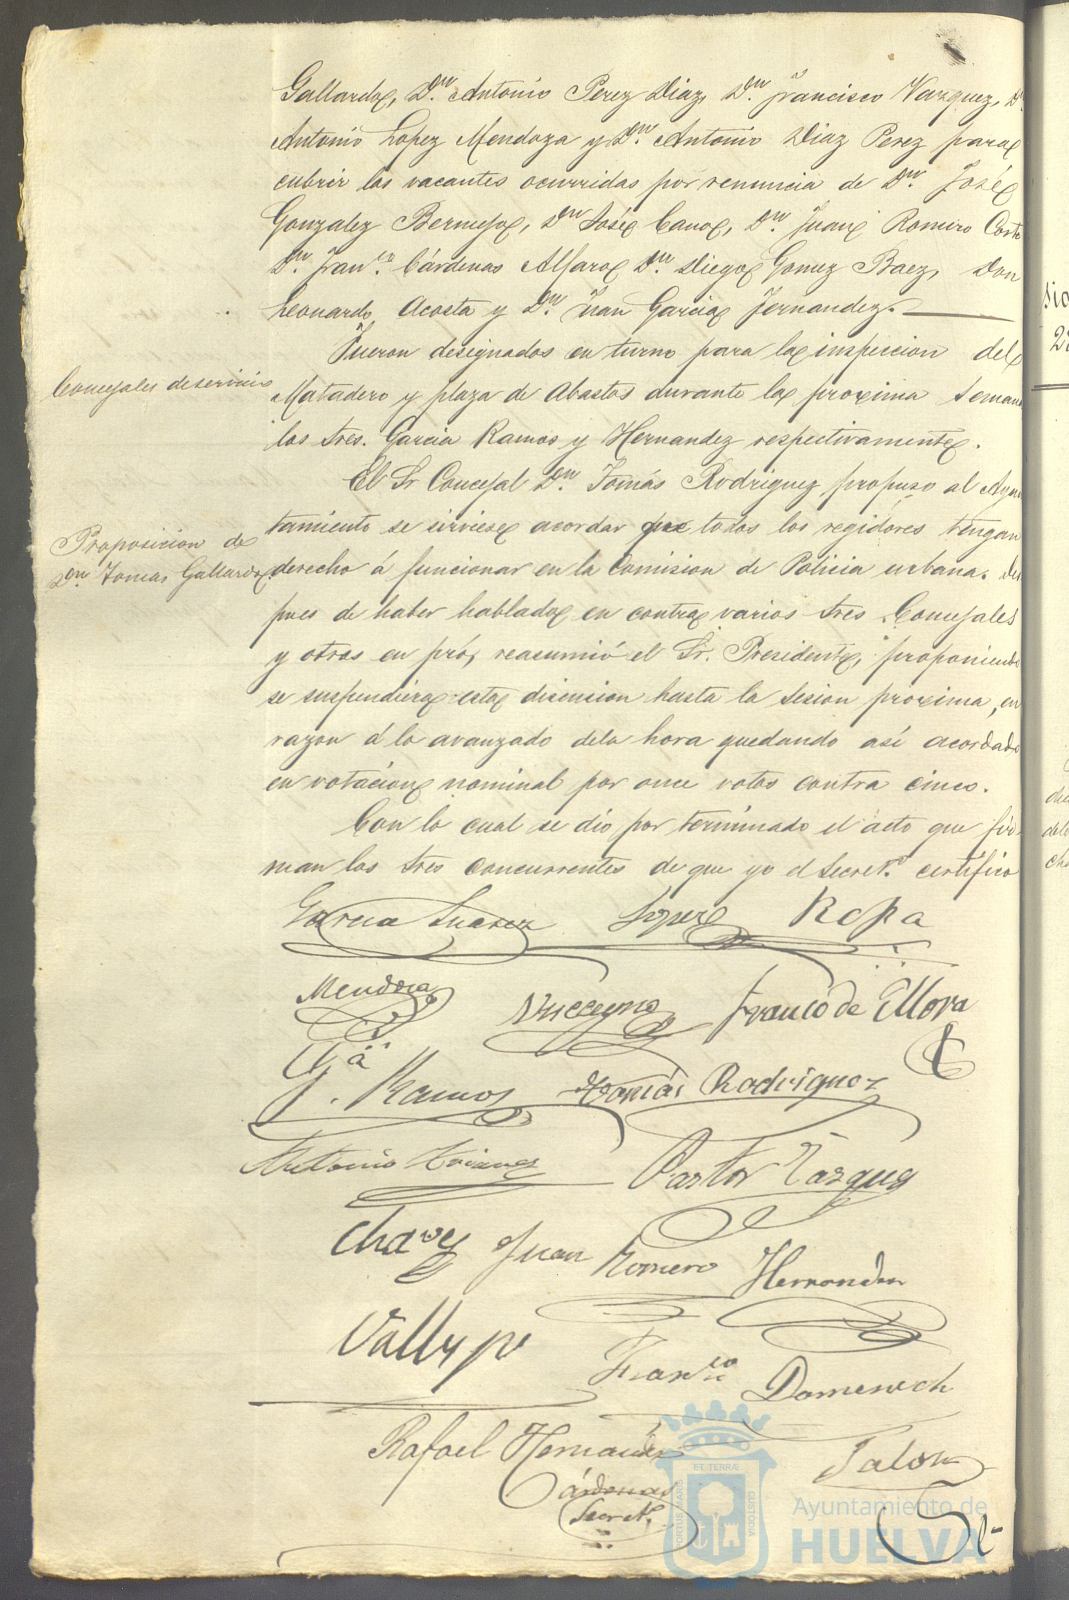 Gallardo, Dn. Antonio Perez Diaz, Dn. Francisco Vazquez, Dn
Antonio Lopez Mendoza y Dn. Antonio Diaz Perez para
cubrir las vacantes ocurridas por renuncia de Dn. José
Gonzalez Bermejo, Dn José Cano, Dn. Juan Romero Conte
Dn. Franco. Cárdenas Alfaro, Dn. Diego Gomez Baez, Don
Leonardo Acosta y Dn. Juan Garcia Fernandez.
Fueron designados en turno para la inspeccion del
Concejales de servicio
Matadero y plaza de Abastos durante la proxima semana
los Sres. Garcia Ramos y Hernandez respectivamente.
El Sr Concejal Dn. Tomás Rodriguez, propuso al Ayun
tamiento se sirviese acordar que todos los regidores tengan
Proposicion de
Dn Tomas Gallardo
derecho á funcionar en la Comision de Policia urbana. Des
pues de haber hablado en contra varios Sres Concejales
y otros en pró, reasumió el Sr. Presidente, proponiendo
se suspendiera esta discusion hasta la sesion proxima, en
razon á lo avanzado dela hora quedando así acordado
en votacion nominal por once votos contra cinco.
Con lo cual se dió por terminado el acto que fir-
man los Sres concurrentes de que yo el Secreto. certifico
Garcia Suarez Lopez Ropa
Mendoza Franco de Mora
Ga
J. Ramos Tomás Rodriguez
Antonio Pastor Vazquez
Chavez Juan Romero Hernandez
Franco Domenech
Rafael Hernandez Talon
Cárdenas
Secreto.
PORTUS MARIS
ET TERRÆ
CUSTODIA
Ayuntamiento de
HUELVA